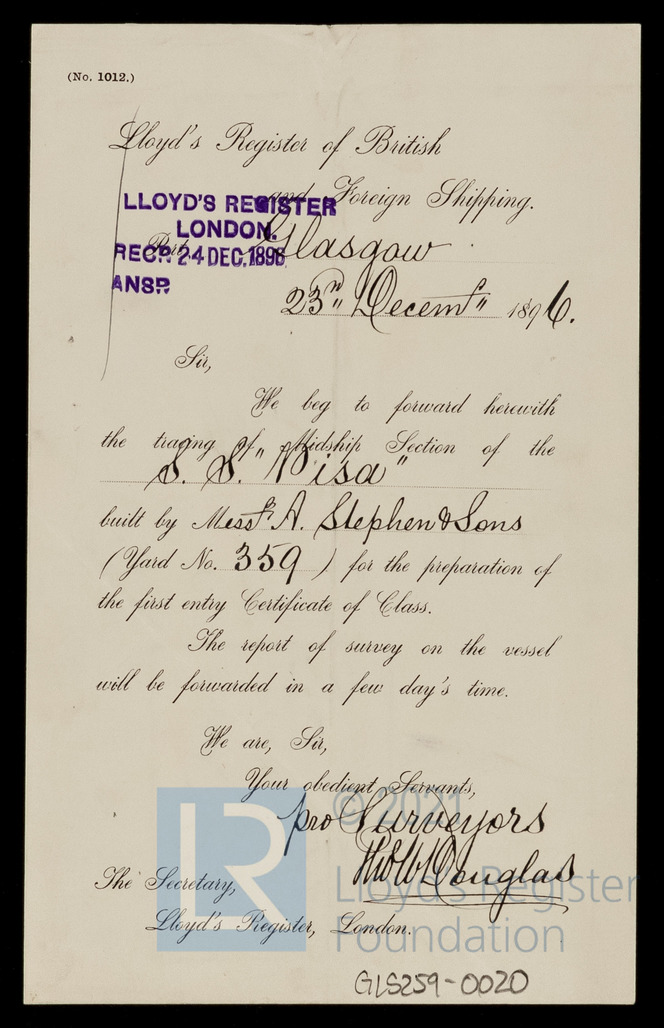 (No. 1012.)
Lloyd's Register of British
and Foreign Shipping.
LLOYD'S REGISTER
LONDON.
RECD. 24 DEC. 1896
ANSD.
Port Glasgow
23rd Decemr 1896.
Sir,
We beg to forward herewith
the tracing of Midship Section of the
S. S. "Pisa"
built by Messrs A. Stephen & Sons
(Yard No. 359) for the preparation of
the first entry Certificate of Class.
The report of survey on the vessel
will be forwarded in a few day's time.
We are, Sir,
Your obedient Servants,
pro Surveyors
Douglas
The Secretary,
Lloyd's Register, London.
LR
© 2021
Lloyd's Register
Foundation
GLS259-0020